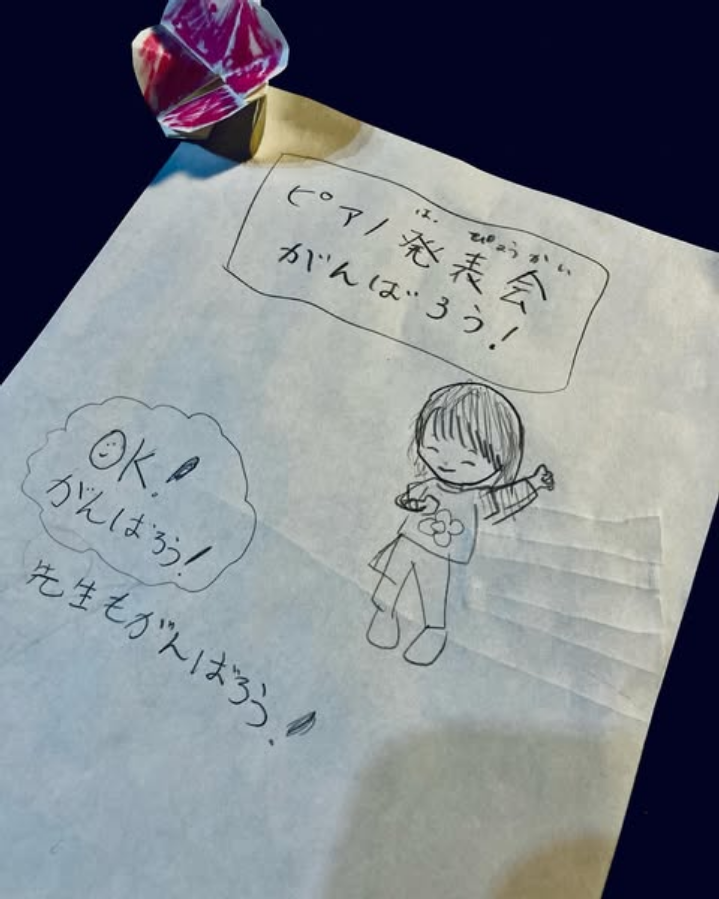 ピアノ発表会
は、ぴょうかい
がんばろう!
OK!
がんばろう!
先生もがんばろう!